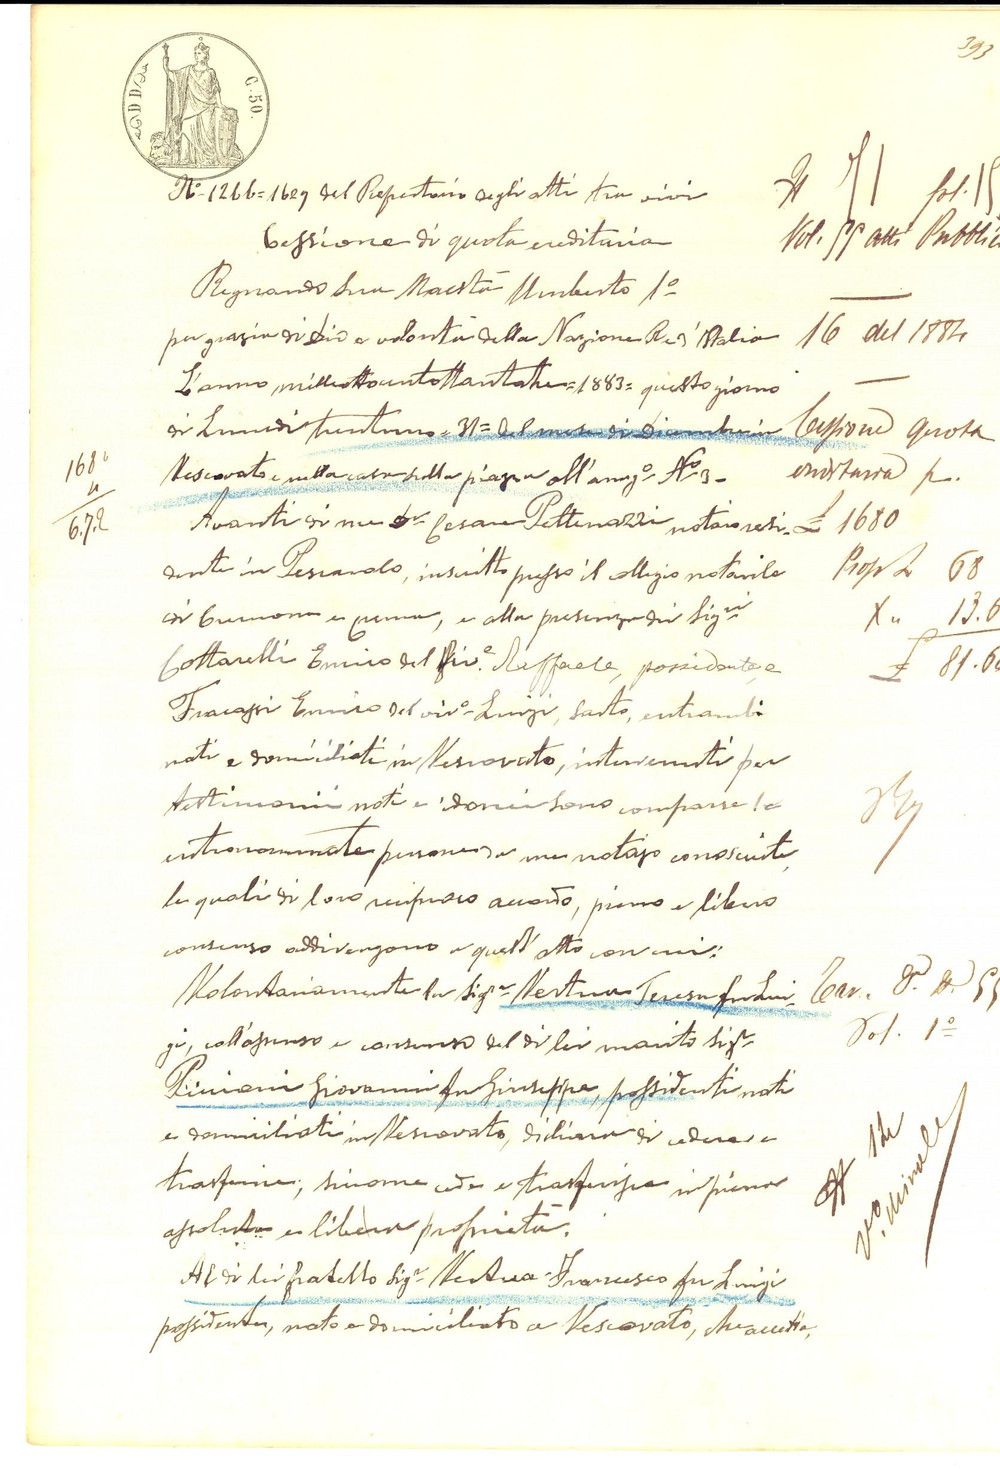 393
C. 50.
N.° 1266=1629 del Repertorio degli atti tra vivi
Cessione di quota ereditaria
Regnando Sua Maestà Umberto 1°
per grazia di Dio e volontà della Nazione Re d'Italia
L'anno milleottocentottantatre =1883= questo giorno
di Lunedì trentuno =31= del mese di Dicembre in
Vescovato e nella casa sulla piazza all'anag.° N.° 3 -
Avanti di me Dr Cesare Pettenazzi notaio resi-
dente in Pescarolo, inscritto presso il collegio notarile
di Cremona e Crema, e alla presenza dei Sigri
Cottarelli Enrico del viv.° Raffaele, possidente, e
Fracassi Enrico del viv.° Luigi, sarto, entrambi
nati e domiciliati in Vescovato, intervenuti per
testimonii noti e idonei sono comparse le
infranominate persone da me notajo conosciute,
le quali di loro reciproco accordo, pieno e libero
consenso addivengono a quest'atto con cui:
Volontariamente la Sigra Vertua Teresa fu Lui-
gi, coll'assenso e consenso del di lei marito Sigr
Piccioni Giovanni fu Giuseppe, possidenti nati
e domiciliati in Vescovato, dichiara di cedere e
trasferire, siccome cede e trasferisce in piena
assoluta e libera proprietà.
Al di lei fratello Sigr Vertua Francesco fu Luigi
possidente, nato e domiciliato a Vescovato, che accetta,
168
4
6.72
N 71 fol. 15
Vol. 55 atti Pubblici
16 del 1884
Cessione quota
ereditaria p.
£ 1680
Prop £ 68
X " 13.6
£ 81.60
Tav. 8.
Vol. 1°